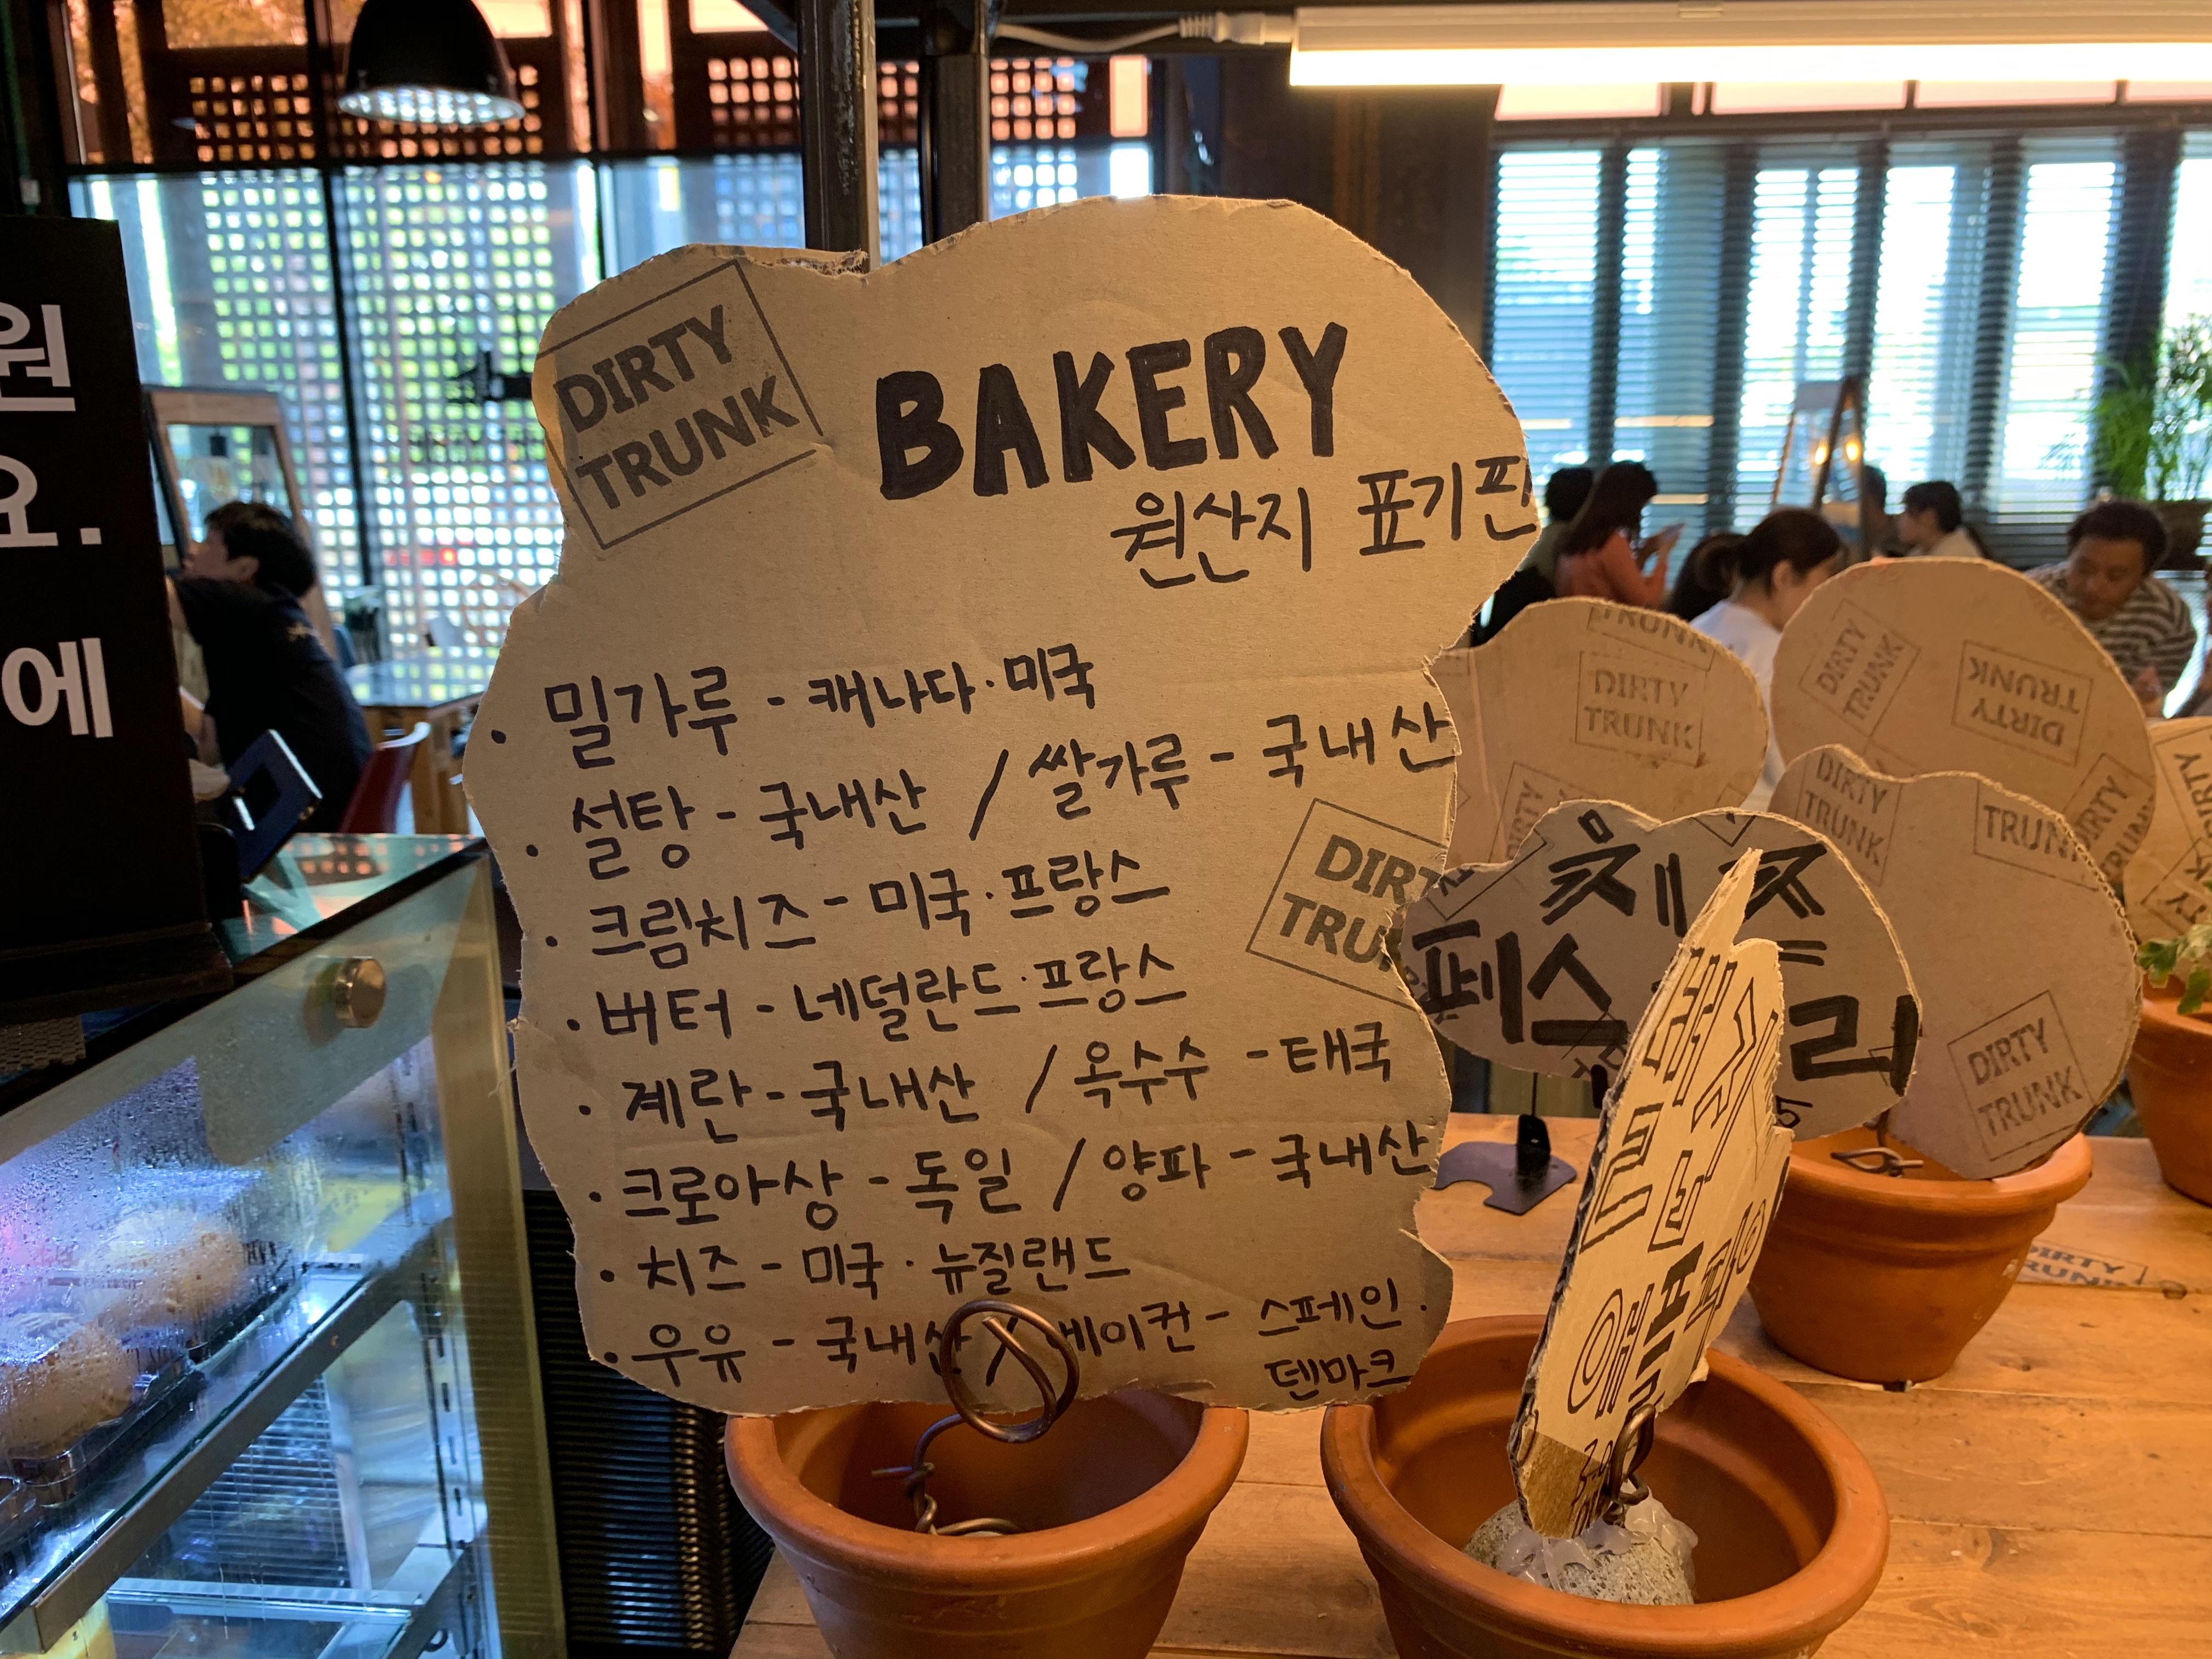 DIRTY
TRUNK
BAKERY
원산지 표기판
· 밀가루 - 캐나다 · 미국
· 설탕 - 국내산 / 쌀가루 - 국내산
· 크림치즈 - 미국 · 프랑스
· 버터 - 네덜란드 · 프랑스
· 계란 - 국내산 / 옥수수 - 태국
· 크로아상 - 독일 / 양파 - 국내산
· 치즈 - 미국 · 뉴질랜드
· 우유 - 국내산 / 베이컨 - 스페인 ·
덴마크
DIRT
TRUN
원
요.
에
치즈
페스트리
TRUNK
DIRTY
TRUNK
DIRTY
TRUNK
DIRTY
TRUNK
DIRTY
TRUNK
TRUNK
DIRTY
TRUNK
DIRTY
TRUNK